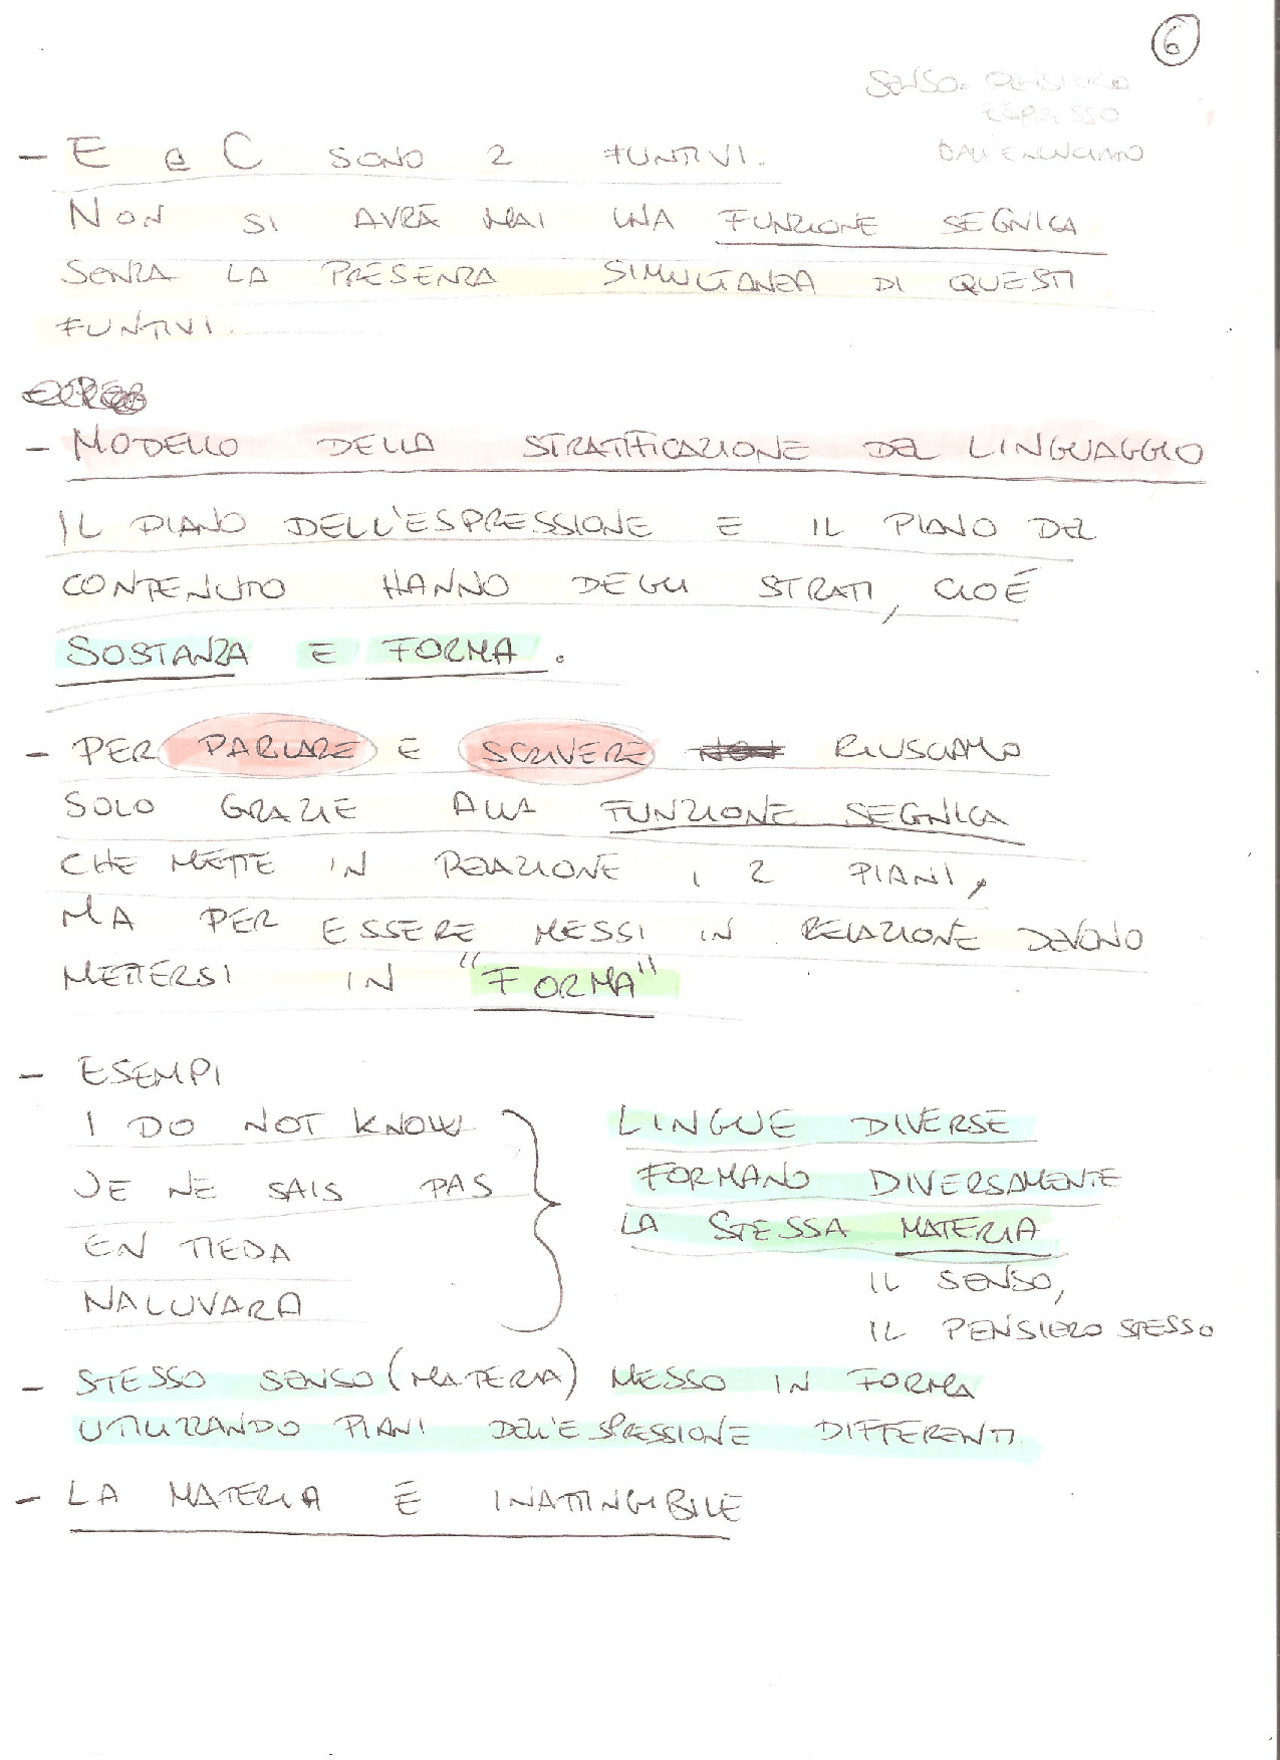 6
SENSO = PENSIERO
ESPRESSO
DALL'ENUNCIATO
- E e C SONO 2 FUNTIVI.
NON SI AVRÀ MAI UNA FUNZIONE SEGNICA
SENZA LA PRESENZA SIMULTANEA DI QUESTI
FUNTIVI.
- MODELLO DELLA STRATIFICAZIONE DEL LINGUAGGIO
IL PIANO DELL'ESPRESSIONE E IL PIANO DEL
CONTENUTO HANNO DEGLI STRATI, CIOÉ
SOSTANZA E FORMA.
- PER PARLARE E SCRIVERE NON RIUSCIAMO
SOLO GRAZIE ALLA FUNZIONE SEGNICA
CHE METTE IN RELAZIONE I 2 PIANI,
MA PER ESSERE MESSI IN RELAZIONE DEVONO
METTERSI IN "FORMA"
- ESEMPI
I DO NOT KNOW
JE NE SAIS PAS
EN TIEDA
NALUVARA
LINGUE DIVERSE
FORMANO DIVERSAMENTE
LA STESSA MATERIA
IL SENSO,
IL PENSIERO STESSO
- STESSO SENSO (MATERIA) MESSO IN FORMA
UTILIZZANDO PIANI DELL'ESPRESSIONE DIFFERENTI.
- LA MATERIA É INATTINGIBILE